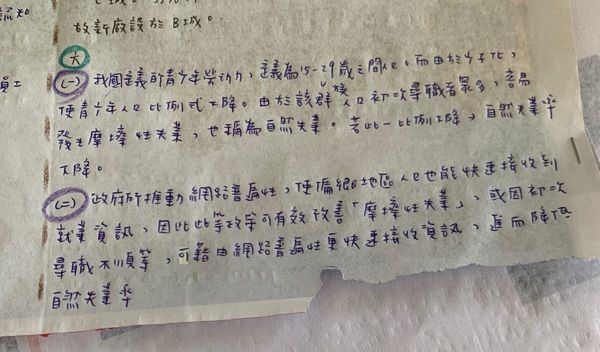 故新廠設於B城。
員工
六
(一) 我國定義所青少年勞動力，定義為15-29歲之間人口。而由於少子化，
使青少年人口比例式下降。由於該群族人口初次尋職者眾多，容易
發生摩擦性失業，也稱為自然失業。若此一比例下降，自然失業率
下降。
(二) 政府所推動網路普遍性，使偏鄉地區人口也能快速接收到
就業資訊，因此此等政策可有效改善「摩擦性失業」，或因初次
尋職不順等，可藉由網路普遍性更快速接收資訊，進而降低
自然失業率